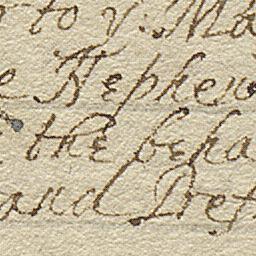 to y. Ma
e Nephew
the beha
and Pres